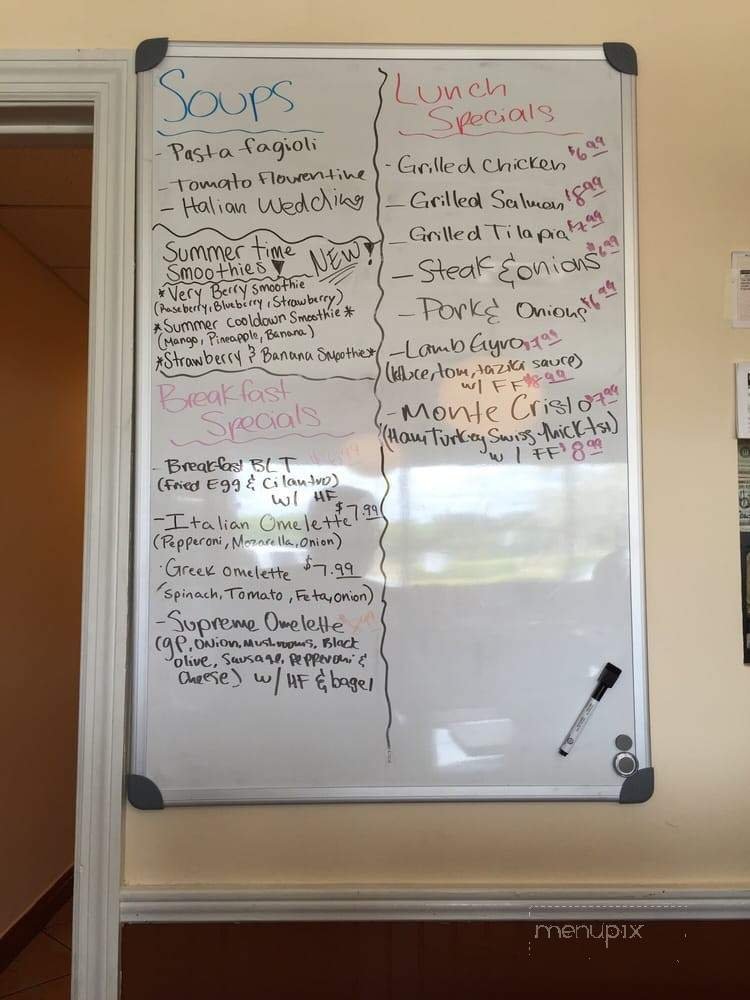 Soups
- Pasta fagioli
- Tomato Flourentine
- Italian Wedding
Summer time
Smoothies NEW!
*Very Berry Smoothie
(Raseberry, Blueberry, Strawberry)
*Summer Cooldown Smoothie*
(Mango, Pineapple, Banana)
*Strawberry & Banana Smoothie*
Breakfast
Specials
- Breakfast BLT
(Fried Egg & Cilantro)
w/ HF
- Italian Omelette $7.99
(Pepperoni, Mozarella, Onion)
- Greek omelette $7.99
(spinach, Tomato, Feta, Onion)
- Supreme Omelette
(GP, Onion, Mushrooms, Black
olive, Sausage, Pepperoni &
Cheese) w/ HF & bagel
Lunch
Specials
- Grilled Chicken $6.99
- Grilled Salmon $8.99
- Grilled Tilapia $7.99
- Steak & Onions $6.99
- Pork & Onions $6.99
- Lamb Gyro $7.99
(lettuce, tom, taziki sauce)
w/ FF $8.99
- Monte Cristo $7.99
(Ham Turkey Swiss Thick tst)
w/ FF $8.99
menupix